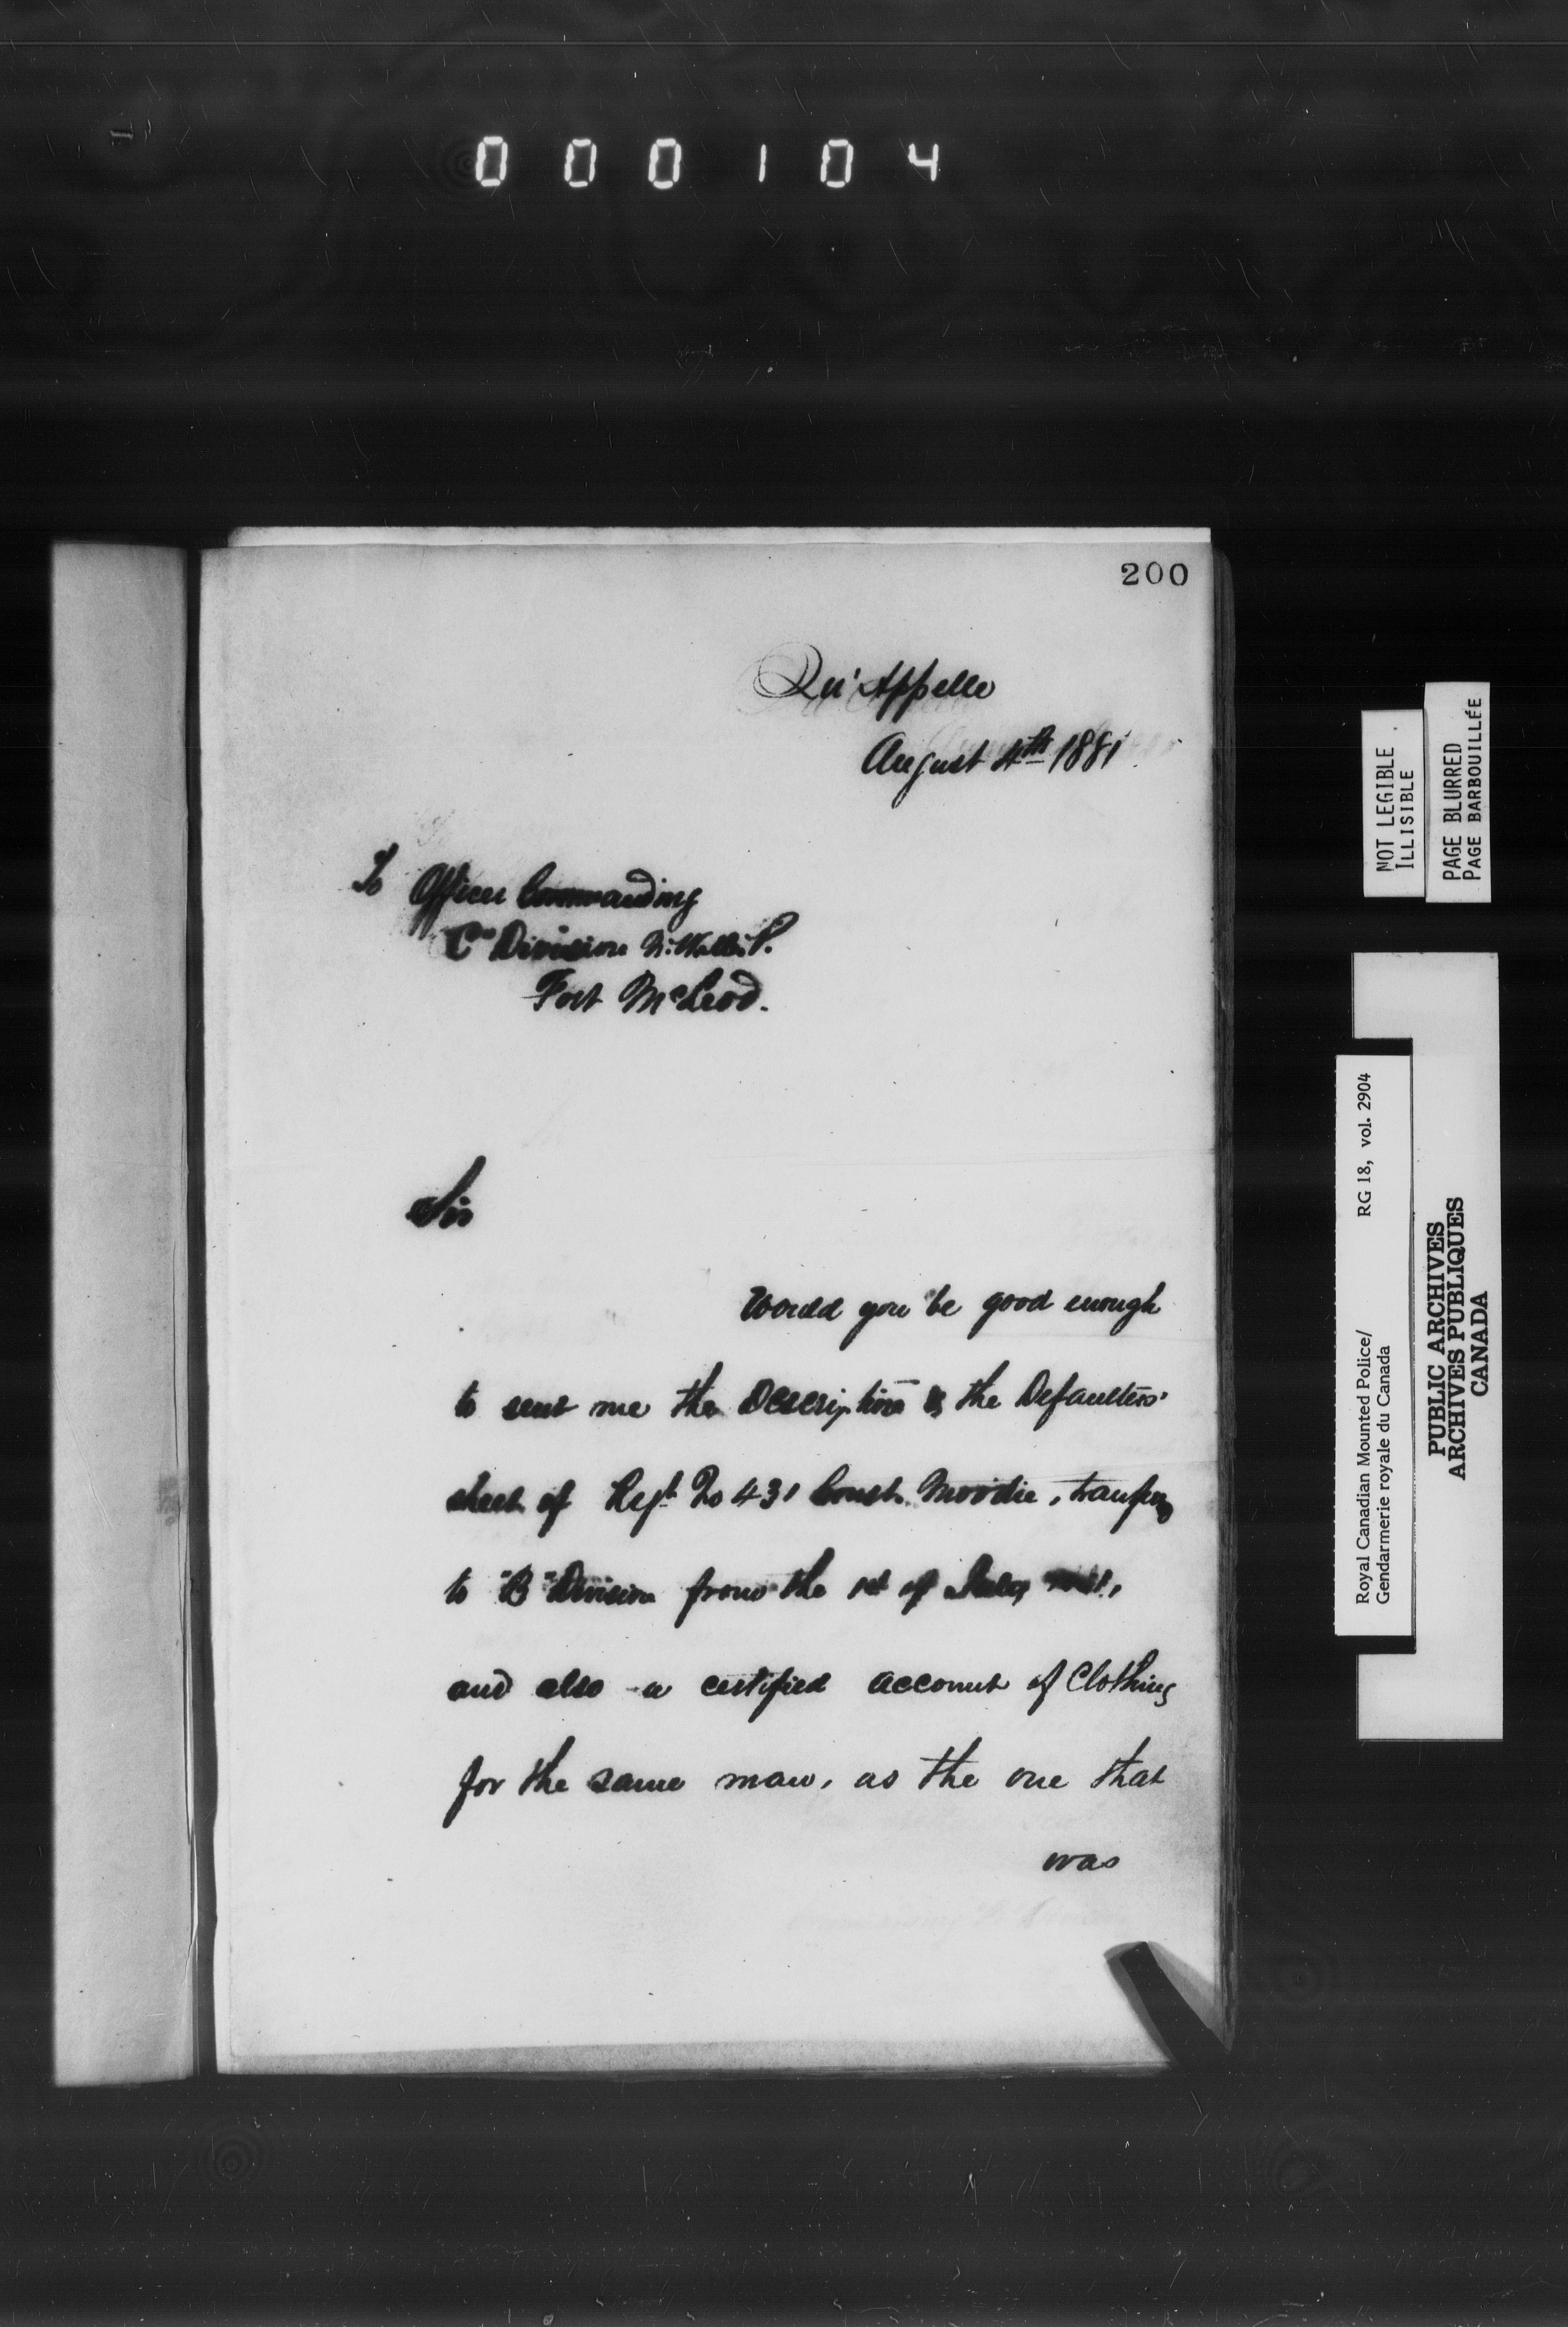 000104
200
Qu'Appelle
August 4th 1881
To Officer Commanding
"C" Division N.W.M.P.
Fort McLeod.
Sir
Would you be good enough
to sent me the Description & the Defaulters'
sheet of Regt No 431 Const. Moodie, transferred
to "B" Division from the 1st of July
and also a certified account of Clothing
for the same man, as the one that
was
NOT LEGIBLE
ILLISIBLE
PAGE BLURRED
PAGE BARBOUILLÉE
Royal Canadian Mounted Police/ RG 18, vol. 2904
Gendarmerie royale du Canada
PUBLIC ARCHIVES
ARCHIVES PUBLIQUES
CANADA